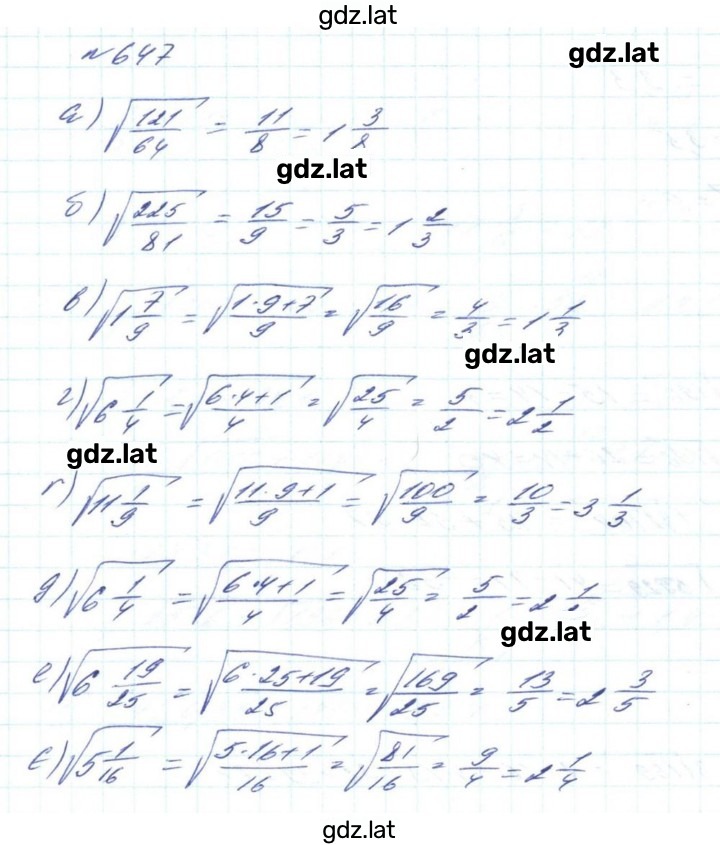 gdz.lat
№ 647
gdz.lat
а) √(121/64) = 11/8 = 1 3/8
gdz.lat
б) √(225/81) = 15/9 = 5/3 = 1 2/3
в) √(1 7/9) = √((1·9+7)/9) = √(16/9) = 4/3 = 1 1/3
gdz.lat
г) √(6 1/4) = √((6·4+1)/4) = √(25/4) = 5/2 = 2 1/2
gdz.lat
ґ) √(11 1/9) = √((11·9+1)/9) = √(100/9) = 10/3 = 3 1/3
д) √(6 1/4) = √((6·4+1)/4) = √(25/4) = 5/2 = 2 1/2
gdz.lat
е) √(6 19/25) = √((6·25+19)/25) = √(169/25) = 13/5 = 2 3/5
є) √(5 1/16) = √((5·16+1)/16) = √(81/16) = 9/4 = 2 1/4
gdz.lat